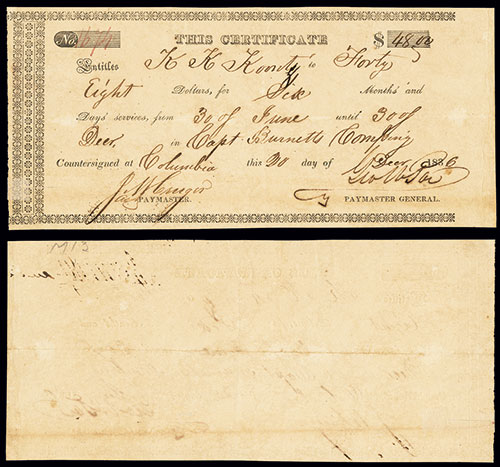 No. 1674 THIS CERTIFICATE $ 48.00
Entitles K K Koontz to Forty
Eight Dollars, for Six Months' and
Days' services, from 30 of June until 30 of
Decr. in Capt Burnetts Company
Countersigned at Columbia this 30 day of Decr. 1836
PAYMASTER. PAYMASTER GENERAL.